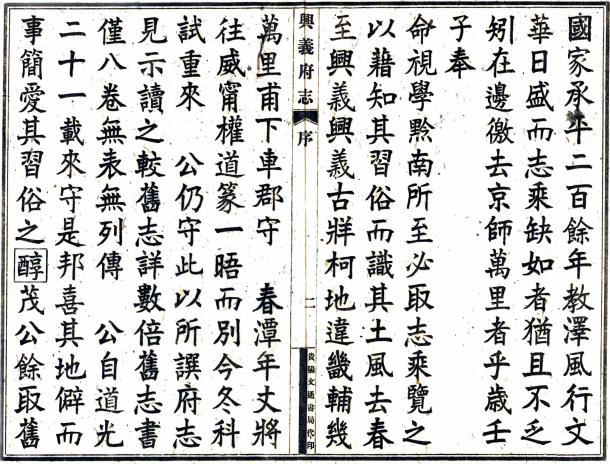 國家承平二百餘年教澤風行文
華日盛而志乘缺如者猶且不乏
矧在邊徼去京師萬里者乎歲壬
子奉
命視學黔南所至必取志乘覽之
以藉知其習俗而識其土風去春
至興義興義古牂柯地違畿輔幾
興義府志 序 二 貴陽文通書局代印
萬里甫下車郡守 春潭年丈將
往威甯權道篆一晤而別今冬科
試重來 公仍守此以所譔府志
見示讀之較舊志詳數倍舊志書
僅八卷無表無列傳 公自道光
二十一載來守是邦喜其地僻而
事簡愛其習俗之醇茂公餘取舊